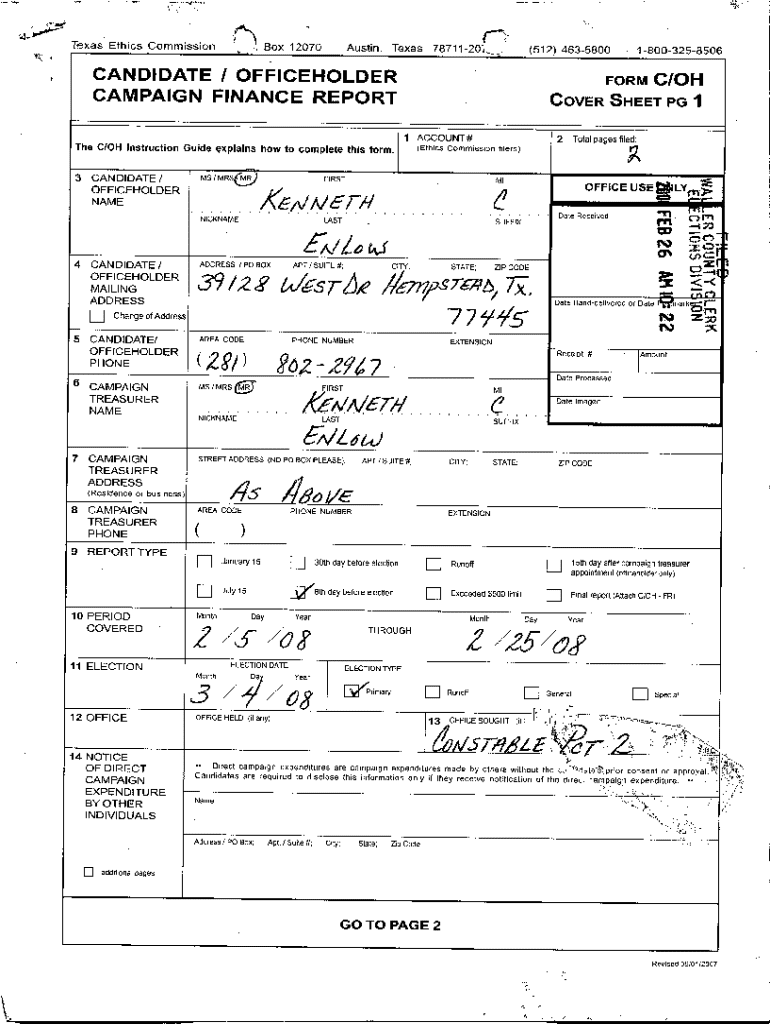 Texas Ethics Commission Box 12070 Austin, Texas 78711-20 (512) 463-5800 1-800-325-8506
CANDIDATE / OFFICEHOLDER
CAMPAIGN FINANCE REPORT
FORM C/OH
COVER SHEET PG 1
The C/OH Instruction Guide explains how to complete this form.
1 ACCOUNT #
(Ethics Commission filers)
2 Total pages filed:
2
3 CANDIDATE /
OFFICEHOLDER
NAME
MS / MRS / MR FIRST MI
KENNETH C
NICKNAME LAST SUFFIX
ENLOW
OFFICE USE ONLY
Date Received
FILED
2008 FEB 26 AM 10:22
WALLER COUNTY CLERK
ELECTIONS DIVISION
4 CANDIDATE /
OFFICEHOLDER
MAILING
ADDRESS
Change of Address
ADDRESS / PO BOX APT / SUITE #; CITY; STATE; ZIP CODE
39128 WEST DR HEMPSTEAD, TX.
77445
Date Hand-delivered or Date
5 CANDIDATE/
OFFICEHOLDER
PHONE
AREA CODE PHONE NUMBER EXTENSION
(281) 802-2967
Receipt # Amount
Date Processed
Date Imaged
6 CAMPAIGN
TREASURER
NAME
MS / MRS / MR FIRST MI
KENNETH C
NICKNAME LAST SUFFIX
ENLOW
7 CAMPAIGN
TREASURER
ADDRESS
(Residence or business)
STREET ADDRESS (NO PO BOX PLEASE); APT / SUITE #; CITY; STATE; ZIP CODE
AS ABOVE
8 CAMPAIGN
TREASURER
PHONE
AREA CODE PHONE NUMBER EXTENSION
( )
9 REPORT TYPE
January 15 30th day before election Runoff 15th day after campaign treasurer
appointment (officeholder only)
July 15 8th day before election Exceeded $500 limit Final report (Attach C/OH - FR)
10 PERIOD
COVERED
Month Day Year THROUGH Month Day Year
2 / 5 / 08 2 / 25 / 08
11 ELECTION
ELECTION DATE
Month Day Year
3 / 4 / 08
ELECTION TYPE
Primary Runoff General Special
12 OFFICE
OFFICE HELD (if any)
13 OFFICE SOUGHT (if
CONSTABLE PCT 2
14 NOTICE
OF DIRECT
CAMPAIGN
EXPENDITURE
BY OTHER
INDIVIDUALS
** Direct campaign expenditures are campaign expenditures made by others without the candidate's prior consent or approval.
Candidates are required to disclose this information only if they receive notification of the direct campaign expenditure. **
Name
Address / PO Box; Apt. / Suite #; City; State; Zip Code
additional pages
GO TO PAGE 2
Revised 09/01/2007